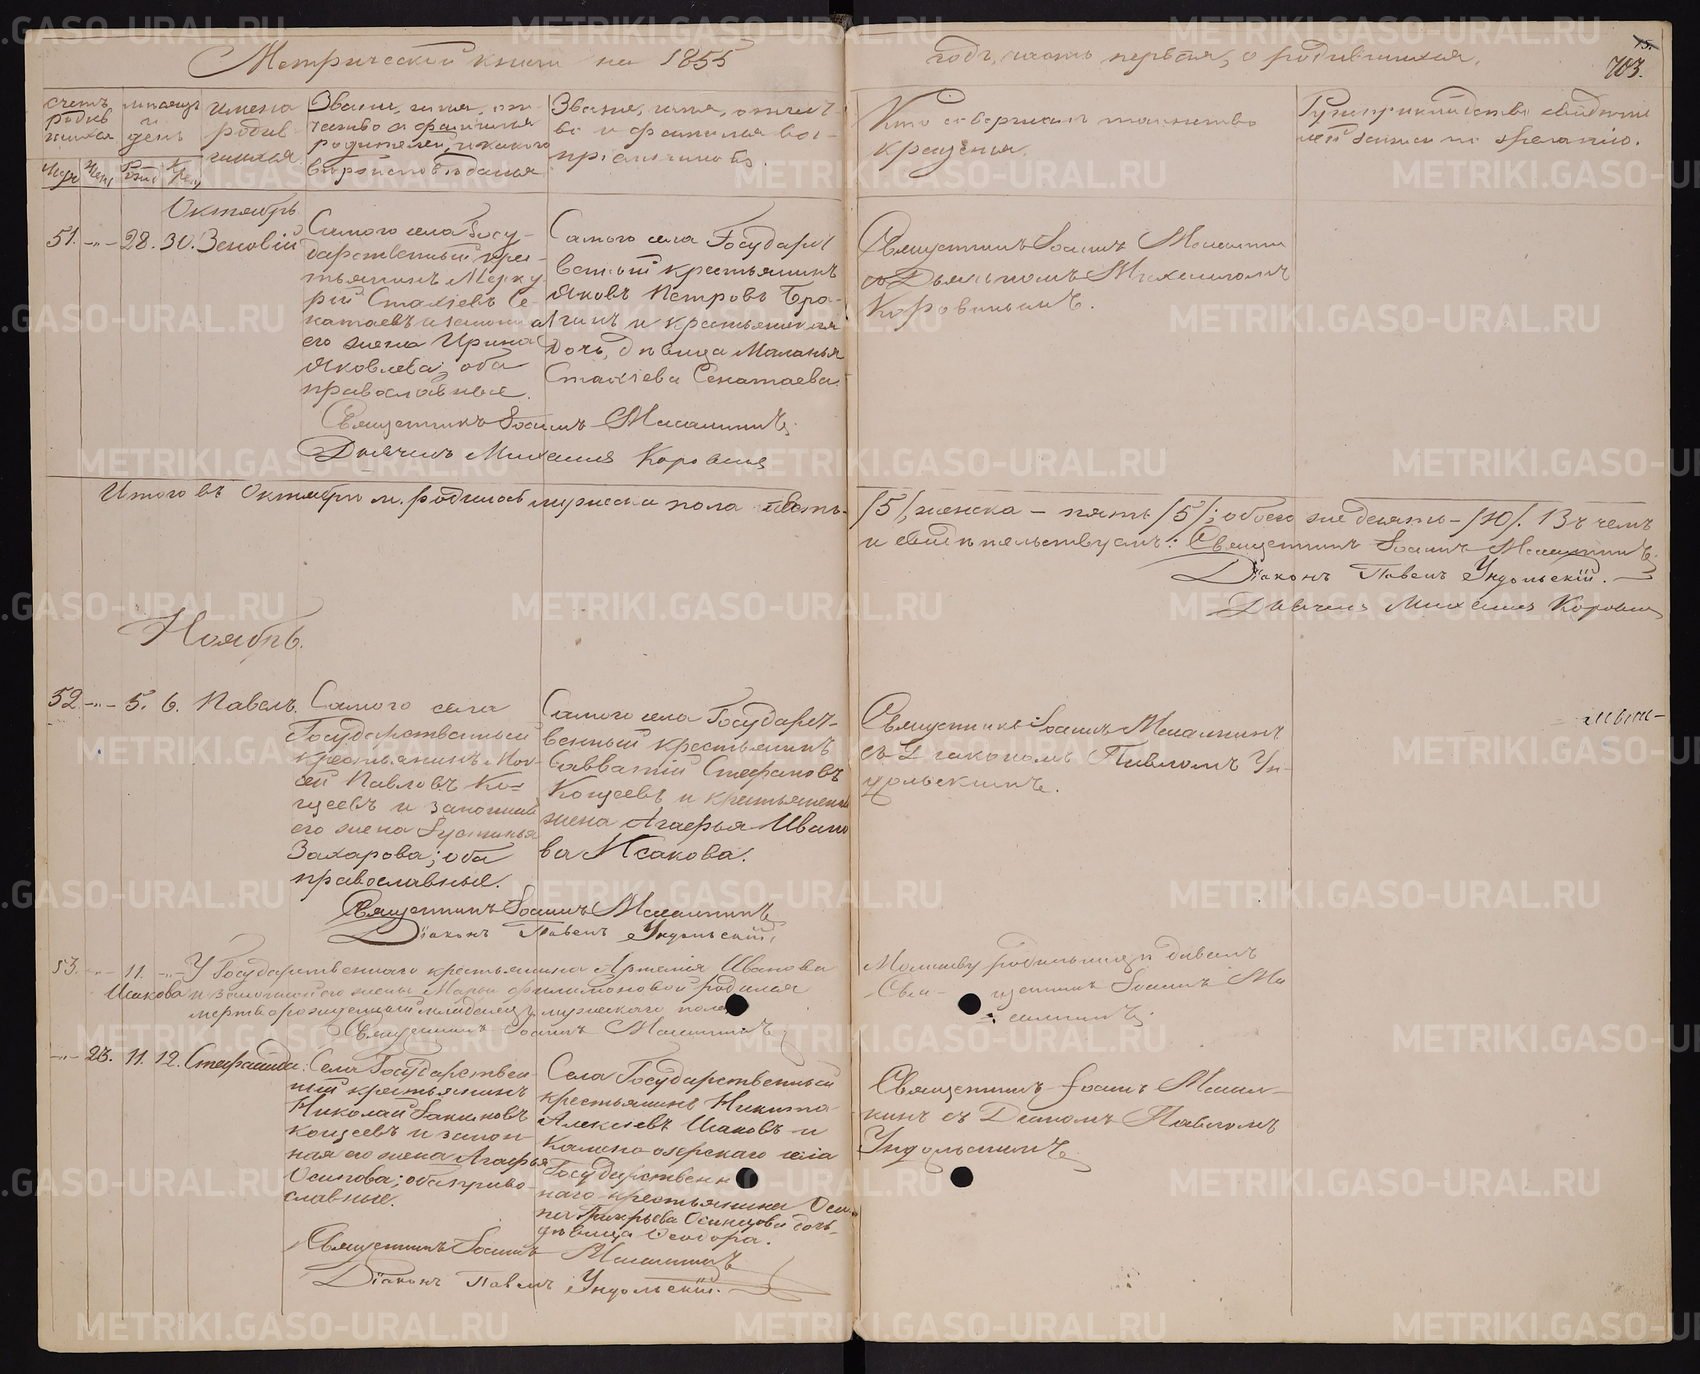 Метрической книги на 1855
годъ, часть первая, о родившихся.
703.
счетъ родившихся
мѣсяцъ и день
имена родившихся.
Званіе, имя, отчество и фамилія родителей, и какого вѣроисповѣданія
Званіе, имя, отчество и фамилія воспріемниковъ.
Кто совершалъ таинство крещенія.
Рукоприкладство свидѣтелей записи по желанію.
Октябрь
51. -„- 28. 30. Зеновій
Самого села Госу-
дарственный кре-
стьянинъ Мерку-
рій Стахіевъ Се-
катаевъ и законная
его жена Ирина
Яковлева; оба
православные.
Самого села Государст
венный крестьянинъ
Яковъ Петровъ Бра-
гинъ и крестьянская
дочь, дѣвица Маланья
Стахіева Секатаева.
Священникъ Іоаннъ
съ Дьячкомъ Михаиломъ
Коровинымъ.
Священникъ Іоаннъ
Дьячекъ Михаилъ Коровинъ
Итого въ Октябрѣ м. родилось мужеска пола пять-
/5/, женска - пять /5/; обоего же десять - /10/. Въ чемъ
и свидѣтельствуемъ: Священникъ Іоаннъ
Діаконъ Павелъ Ундольскій.
Дьячекъ Михаилъ Коровинъ
Ноябрь.
52 -„- 5. 6. Павелъ.
Самого села
Государственный
крестьянинъ Мои-
сей Павловъ Ко-
щеевъ и законная
его жена Іустинья
Захарова; оба
православные.
Самого села Государст-
венный крестьянинъ
Савватій Стефановъ
Кощеевъ и крестьянская
жена Агафья Ивано
ва Исакова.
Священникъ Іоаннъ
съ Діакономъ Павломъ Ун-
дольскимъ.
Священникъ Іоаннъ
Діаконъ Павелъ Ундольскій.
53. -„- 11. -„- У Государственнаго крестьянина Артемія Иванова
Исакова и законной его жены Марьи Филимоновой родился
мертворожденный младенецъ мужескаго пола
Священникъ Іоаннъ
Молитву родильницѣ давалъ
Свя- щенникъ Іоаннъ
-„- 23. 11. 12. Стефанида.
Села Государствен
ный крестьянинъ
Николай
Кощеевъ и закон-
ная его жена Агафья
Осипова; оба право-
славные.
Села Государственный
крестьянинъ Никита
Алексѣевъ Исаковъ и
Каменно-озерскаго села
Государствен
наго крестьянина Оси-
па Осинцова дочь
дѣвица Ѳеодора.
Священникъ Іоаннъ
съ Діакономъ Павломъ
Ундольскимъ.
Священникъ Іоаннъ
Діаконъ Павелъ Ундольскій.
METRIKI.GASO-URAL.RU